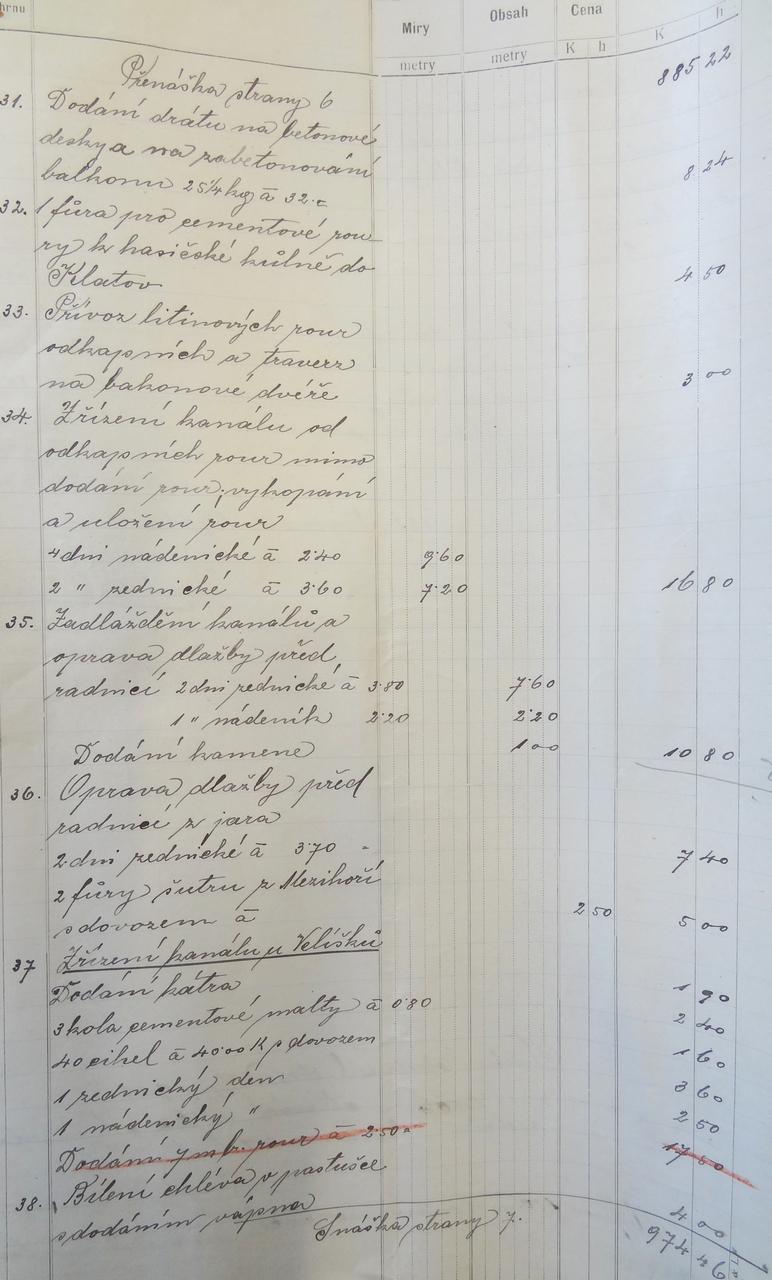 hrnu Míry Obsah Cena K h
metry metry K h
Přenáška strany 6 885 22
31. Dodání drátu na betonové
desky a na zabetonování
balkonu 25 1/4 kg á 32.- 8 24
32. 1 fůra pro cementové rou-
ry k hasičské kůlně do
Klatov 4 50
33. Přívoz litinových rour
odkapních a traverz
na bakonové dvéře 3 00
34. Zřízení kanálu od
odkapních rour mimo
dodání rour; vykopání
a uložení rour
4 dni nádenické á 2·40 9·60
2 " zednické á 3·60 7·20 16 80
35. Zadláždění kanálů a
oprava dlažby před
radnicí 2 dni zednické á 3·80 7·60
1 " nádeník 2·20 2·20
Dodání kamene 1 00 10 80
36. Oprava dlažby před
radnicí z jara
2 dni zednické á 3·70 7 40
2 fůry šutru z Mezihoří
s dovozem á 2 50 5 00
37 Zřízení kanálu u Velíšků
Dodání kátra 1 90
3 kola cementové malty á 0·80 2 40
40 cihel á 40·00 K s dovozem 1 60
1 zednický den 3 60
1 nádenický " 2 50
Dodání 7 mtr. rour á 2·50 17 50
38. Bílení chléva v pastušce
s dodáním vápna 4 00
Snáška strany 7. 974 46